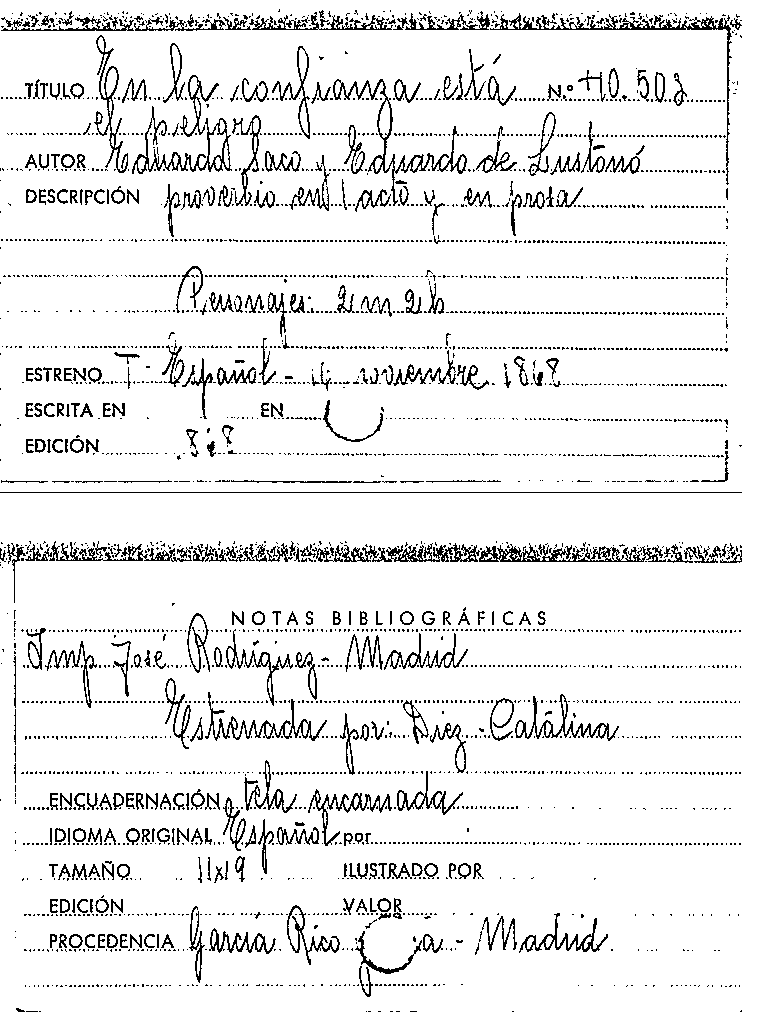 TÍTULO En la confianza está N.º 40.503
el peligro
AUTOR Eduardo Saco y Eduardo de Lustonó
DESCRIPCIÓN proverbio en 1 acto y en prosa
Personajes: 2 m 2 h
ESTRENO T. Español - noviembre 1868
ESCRITA EN EN
EDICIÓN
NOTAS BIBLIOGRÁFICAS
Imp José Rodríguez - Madrid
Estrenada por: Diez - Catalina
ENCUADERNACIÓN tela encarnada
IDIOMA ORIGINAL Español por
TAMAÑO 11x19 ILUSTRADO POR
EDICIÓN VALOR
PROCEDENCIA García Rico - Madrid